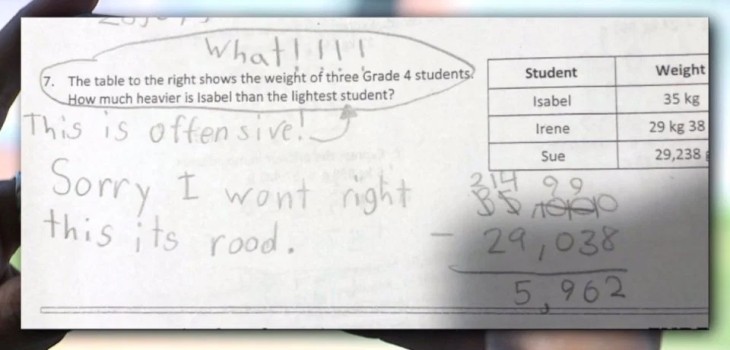 What!!!!
7. The table to the right shows the weight of three Grade 4 students.
How much heavier is Isabel than the lightest student?
Student Weight
Isabel 35 kg
Irene 29 kg 38
Sue 29,238
This is offensive!
Sorry I wont right
this its rood.
314 99
35
- 29,038
5,962